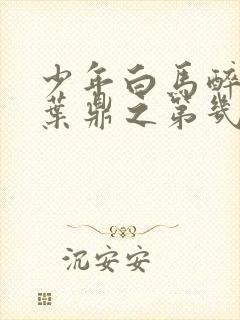 少年白馬醉
葉鼎之第幾
沉安安